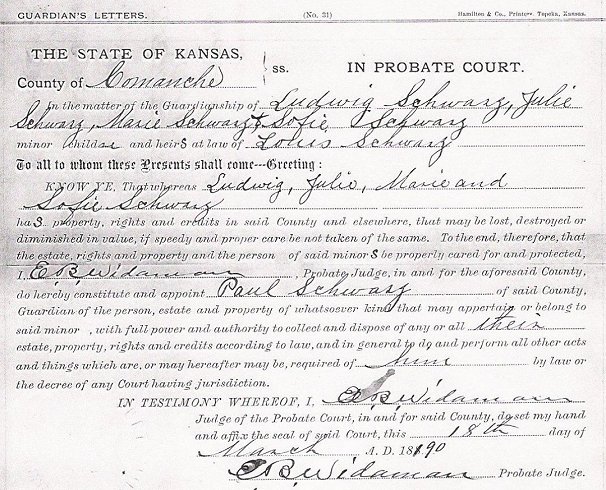 GUARDIAN'S LETTERS. (No. 31) Hamilton & Co., Printers, Topeka, Kansas.
THE STATE OF KANSAS,
County of Comanche ss. IN PROBATE COURT.
In the matter of the Guardianship of Ludwig Schwarz, Julie
Schwarz, Marie Schwarz & Sofie Schwarz
minor children and heirs at law of Louis Schwarz
To all to whom these Presents shall come---Greeting:
KNOW YE, That whereas Ludwig, Julie, Marie and
Sofie Schwarz
has property, rights and credits in said County and elsewhere, that may be lost, destroyed or
diminished in value, if speedy and proper care be not taken of the same. To the end, therefore, that
the estate, rights and property and the person of said minors be properly cared for and protected,
I, E.B. Widaman, Probate Judge, in and for the aforesaid County,
do hereby constitute and appoint Paul Schwarz of said County,
Guardian of the person, estate and property of whatsoever kind that may appertain or belong to
said minor , with full power and authority to collect and dispose of any or all their
estate, property, rights and credits according to law, and in general to do and perform all other acts
and things which are, or may hereafter may be, required of him by law or
the decree of any Court having jurisdiction.
IN TESTIMONY WHEREOF, I, E.B. Widaman
Judge of the Probate Court, in and for said County, do set my hand
and affix the seal of said Court, this 18th day of
March A. D. 1890
E.B. Widaman Probate Judge.